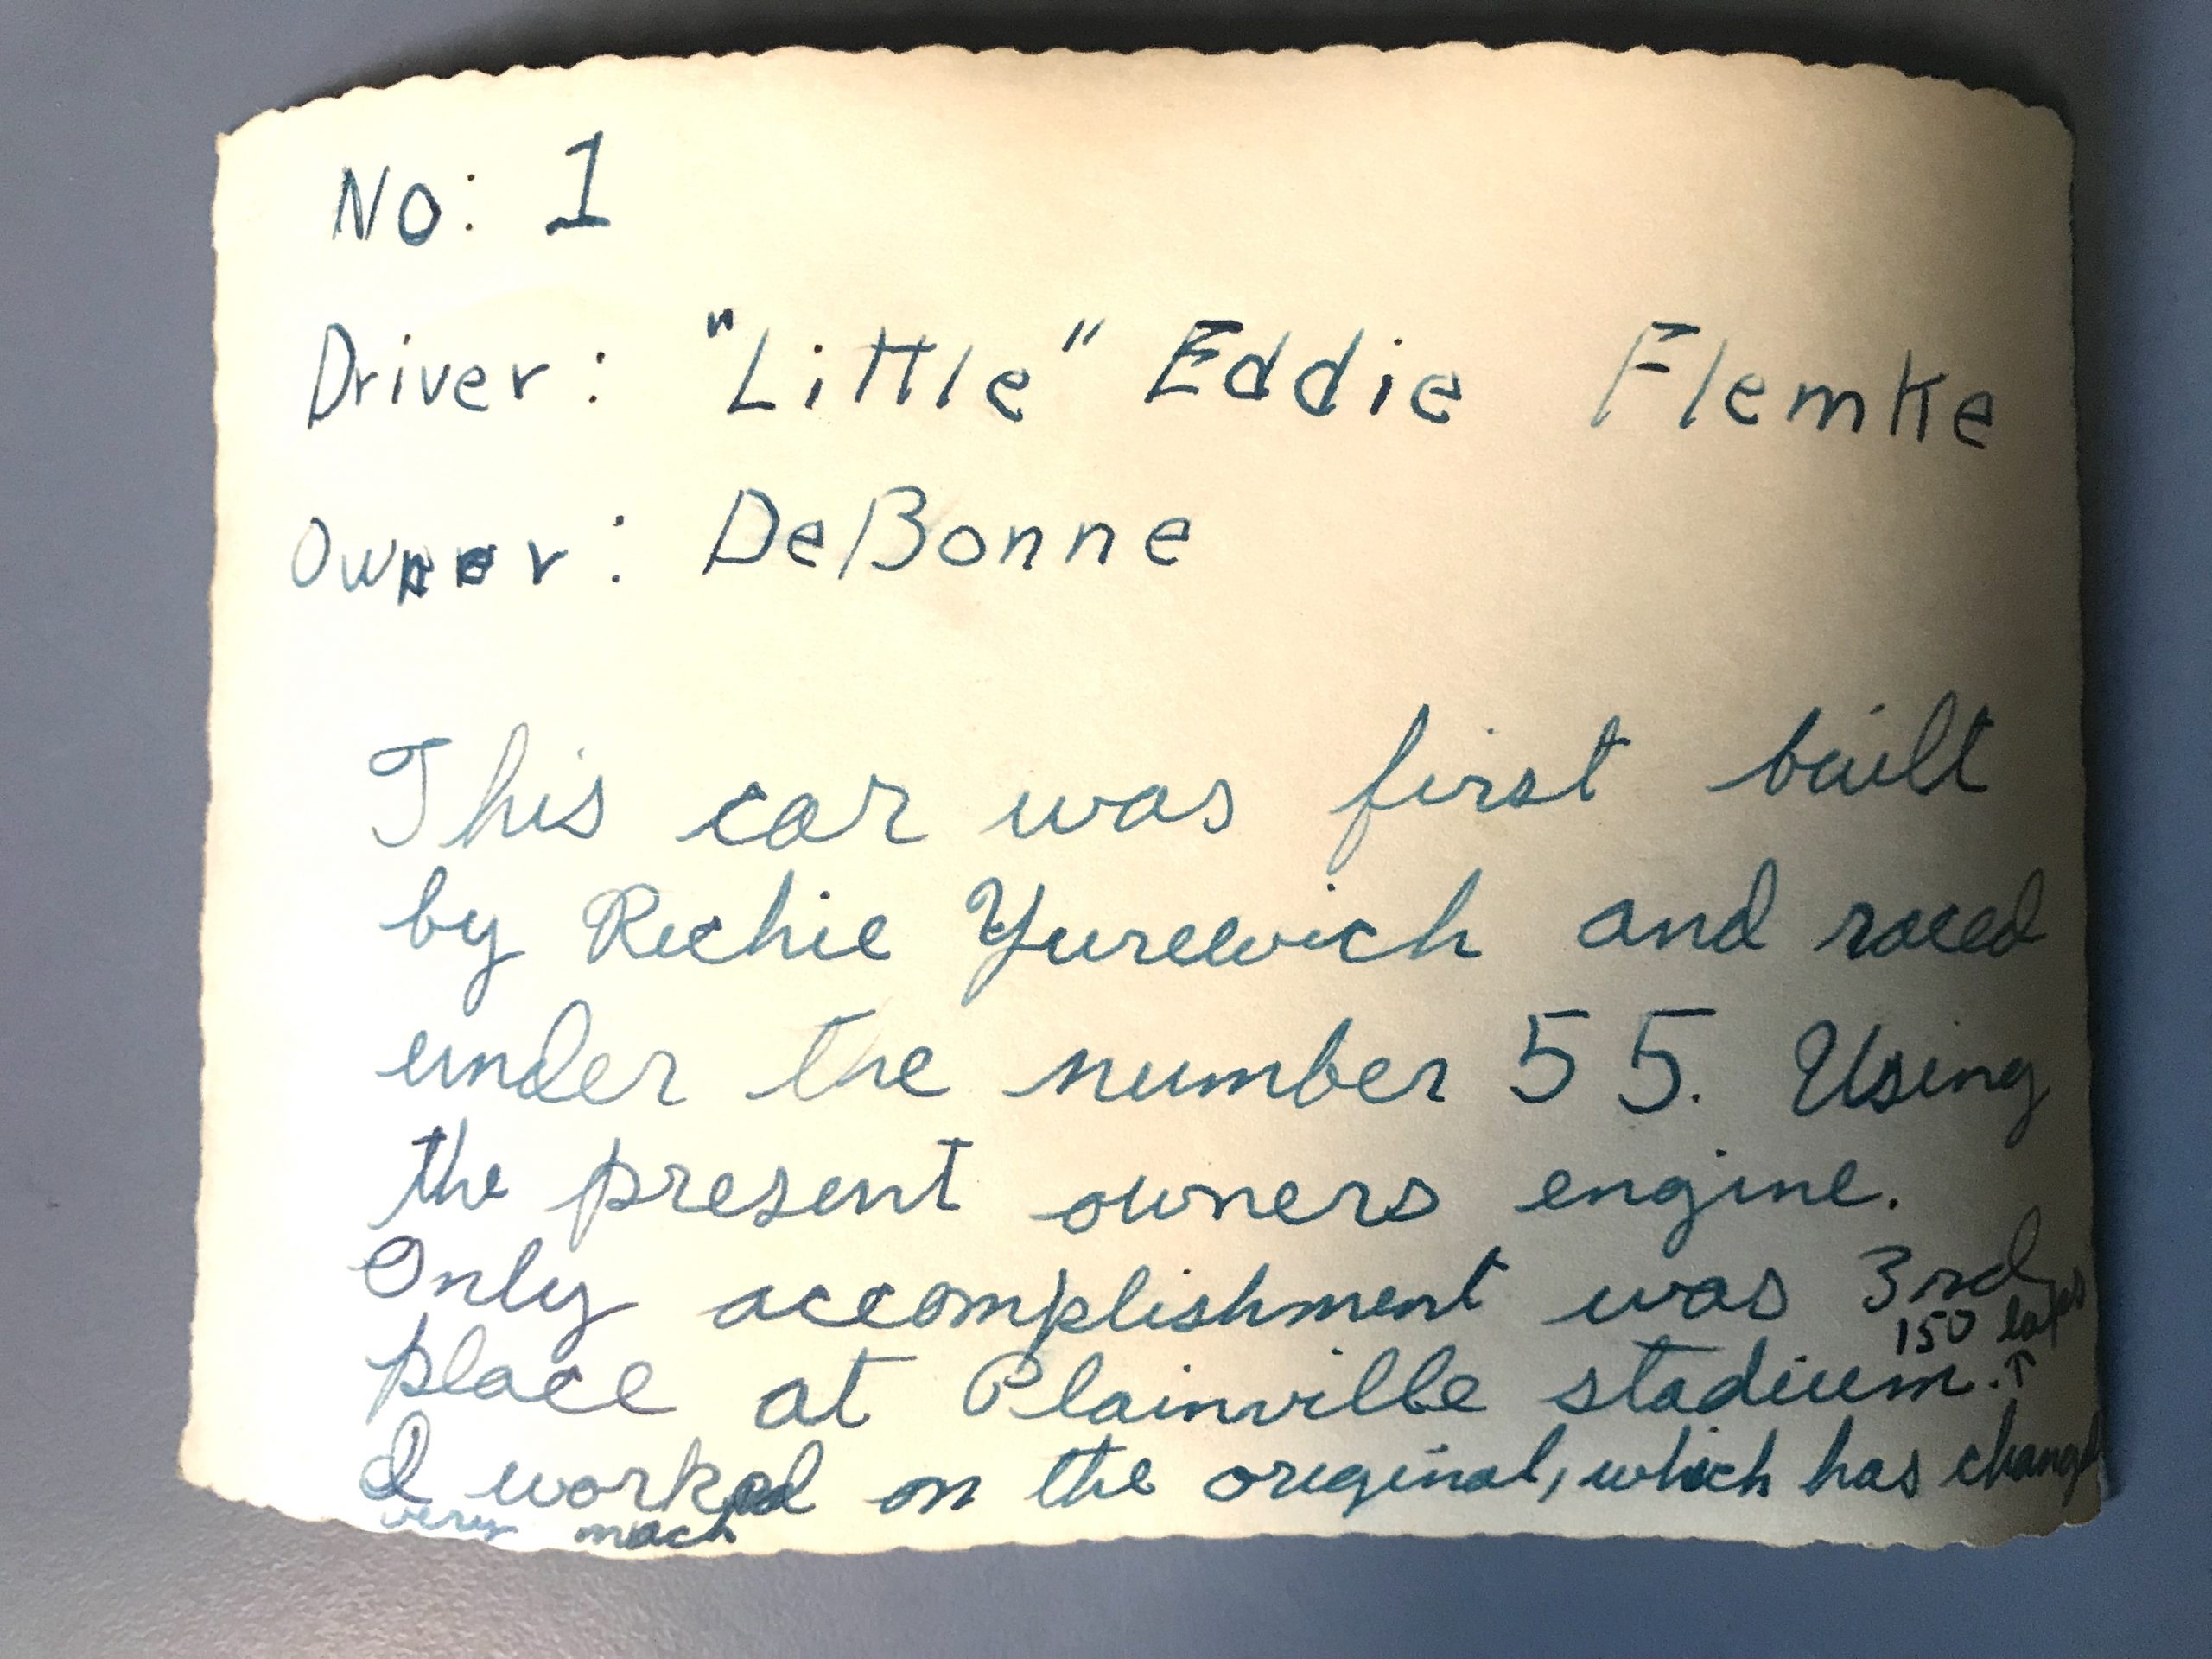 No: 1
Driver: "Little" Eddie Flemke
Owner: DeBonne
This car was first built
by Richie Yurewich and raced
under the number 55. Using
the present owners engine.
Only accomplishment was 3rd
150 laps
place at Plainville stadium. ↑
I worked on the original, which has changed
very much